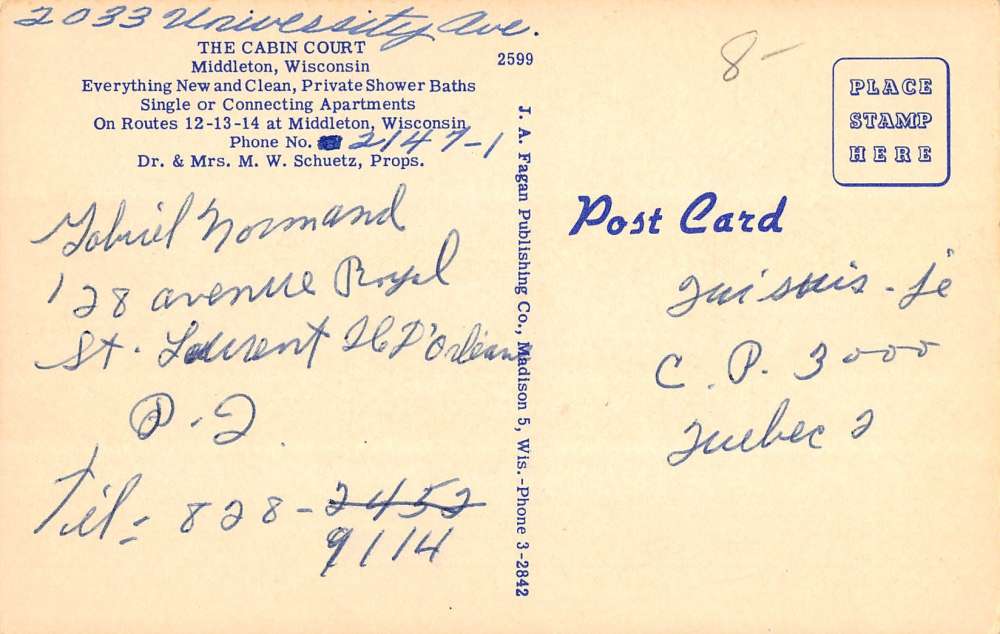 2033 University Ave.
THE CABIN COURT
Middleton, Wisconsin
Everything New and Clean, Private Shower Baths
Single or Connecting Apartments
On Routes 12-13-14 at Middleton, Wisconsin
Phone No. 2147-1
Dr. & Mrs. M. W. Schuetz, Props.
2599
Gabriel Normand
128 avenue Royal
St. Laurent Il D'Orléans
P.Q.
Tél = 828-2452
9114
J. A. Fagan Publishing Co., Madison 5, Wis.-Phone 3-2842
8-
PLACE
STAMP
HERE
Post Card
Qui suis-je
C.P. 3000
Quebec 2